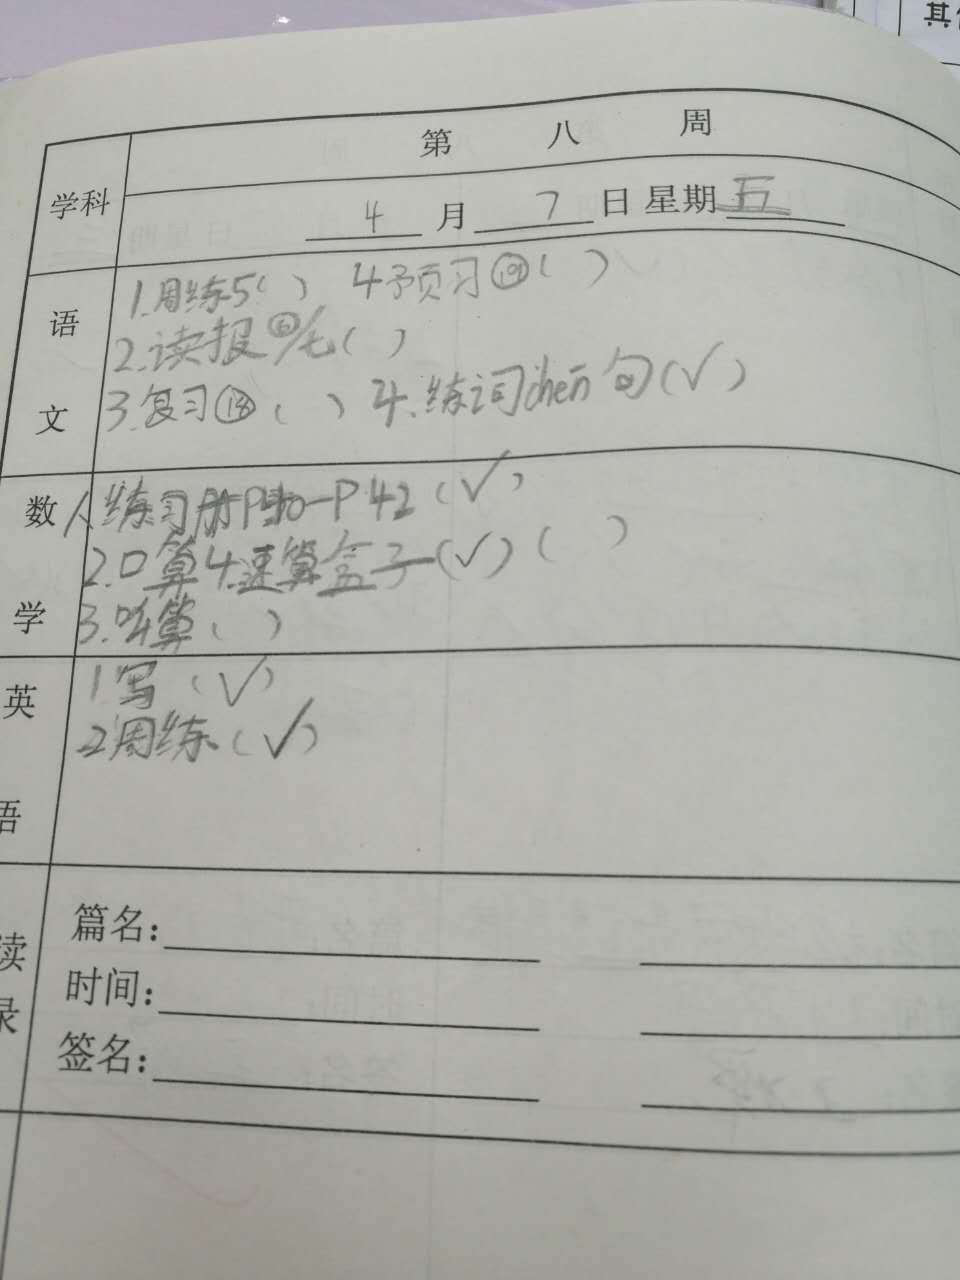 其
第 八 周
学科
4 月 7 日 星期 五
语文
1.周练5( ) 4予页习⑲( )
2.读报⑥/七( )
3.复习⑱( ) 4.练词chēn句(✓)
数学
1.练习册P40-P42(✓)
2.口算4.速算盒子(✓)( )
3.听算( )
英语
1写(✓)
2周练(✓)
读
录
篇名:
时间:
签名: